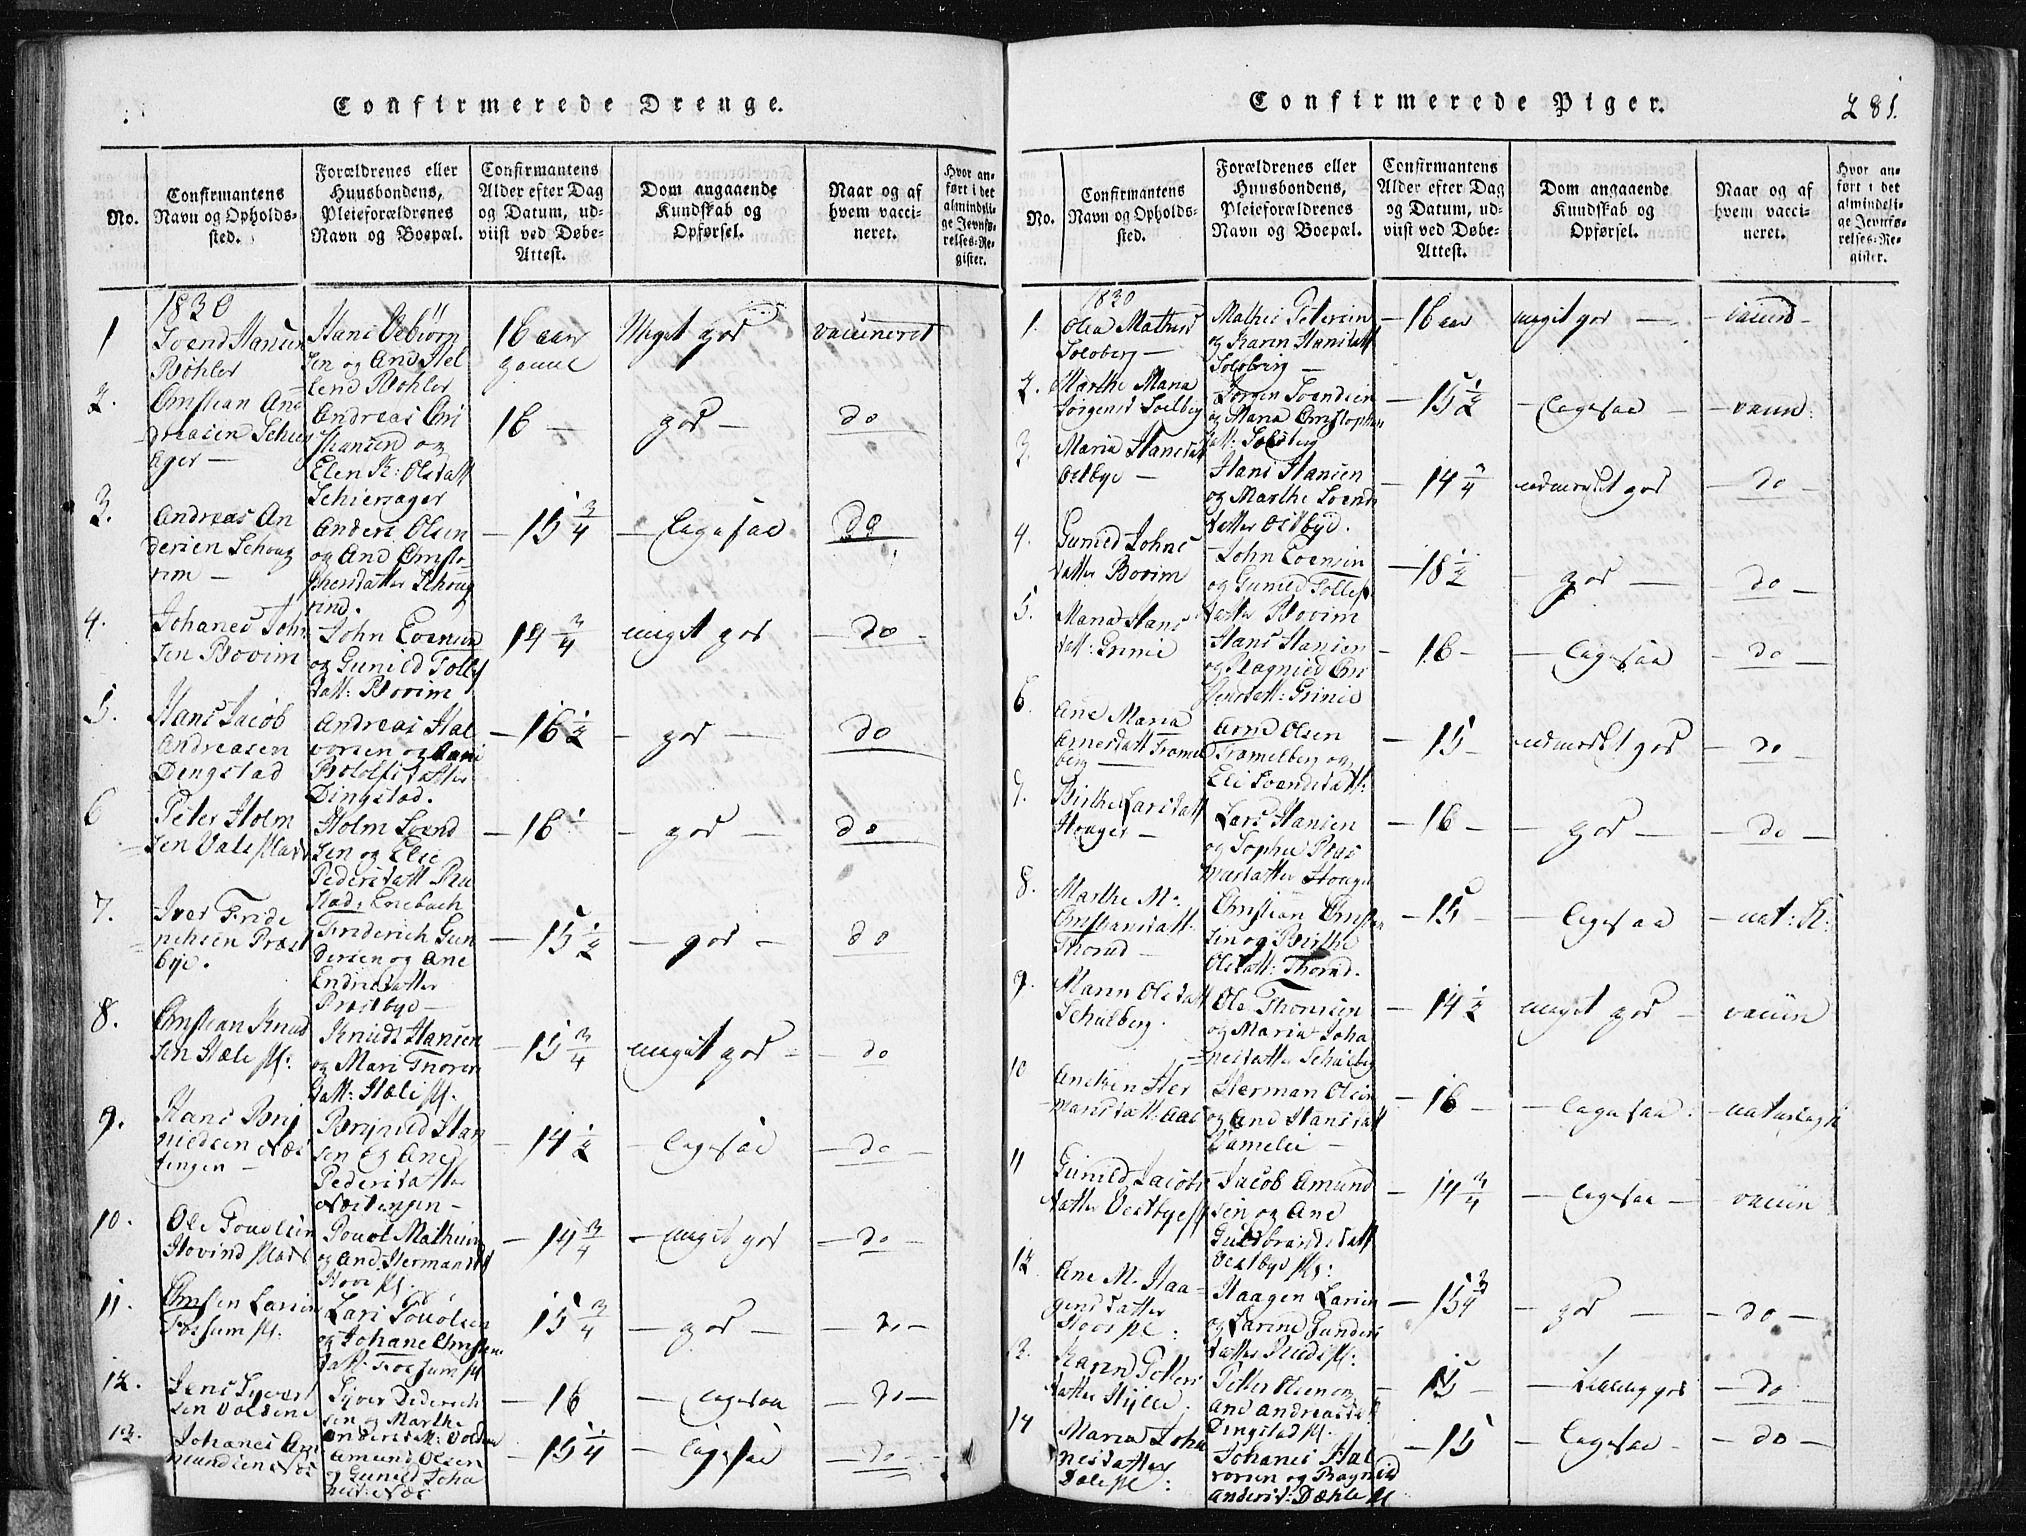 Confirmerede Drenge.
No.
Confirmantens
Navn og Opholds-
sted.
Forældrenes eller
Huusbondens,
Pleieforældrenes
Navn og Boepæl.
Confirmantens
Alder efter Dag
og Datum, ud-
viist ved Døbe-
Attest.
Dom angaaende
Kundskab og
Opførsel.
Naar og af
hvem vacci-
neret.
Hvor an-
ført i det
almindeli-
ge Jevnfø-
relses-Re-
gister.
1830
1
Svend Hansen
Røhler
Hans
sen og Ane Hel
lend Røhler
16 aar
gamel
Meget god
vaccineret
2.
Christian And
dreasen Schier
ager
Andreas Chri
stiansen og
Elen K: Olsdatt
Schieragger
16
god
do
3.
Andreas An
dersen Schoug
rim
Anders Olsen
og Ane Christo-
phersdatter Schoug
rind.
15 3/4
do
4.
Johanes John
sen Bovim
John Evensen
og Gunild Tolls
datt: Bovim
14 3/4
meget god
do
5.
Hans Jacob
Andreasen
Dingstad
Andreas Hal
vorsen og
Rolofsdatter
Dingstad.
16 1/2
god
do
6
Peter Holm
sen Vale plads
Holm Svend
sen og Elie
Pedersdatt Ru
stad Enebach
16
god
do
7.
Iver Fride
richsen Præst
bye.
Friderich Gun
dersen og Ane
Endresdatter
Præstbye
15 1/2
god
do
8.
Christian Knud
sen Hæle pl:
Knud Hansen
og Mari Thores
datt: Hæli pl.
15 3/4
meget god
do
9.
Hans Bry
nildsen Næs
tengen
Brynild Han
sen og Ane
Pedersdatter
Næstengen
14 1/2
do
10.
Ole Poulsen
Hovind plads
Pouol Mathisen
og Ane Hermansd
Hove pl.
14 3/4
meget god
do
11.
Christen Larsen
Fossum pl.
Lars Pouolsen
og Johane Christens
datt. Fossum pl
15 3/4
god
do
12.
Jens Syvert
sen Voldene
Syver Dederich
sen og Marthe
Andersdatt: Volden
16
do
13.
Johanes Am
mundsen Næs
Amund Olsen
og Gunild Joha
nesd: Næs
15 1/4
do
Confirmerede Piger.
281.
No.
Confirmantens
Navn og Opholds-
sted.
Forældrenes eller
Huusbondens,
Pleieforældrenes
Navn og Boepæl.
Confirmantens
Alder efter Dag
og Datum, ud-
viist ved Døbe-
Attest.
Dom angaaende
Kundskab og
Opførsel.
Naar og af
hvem vacci-
neret.
Hvor an-
ført i det
almindeli-
ge Jevnfø-
relses-Re-
gister.
1830
1.
Olea Mathisd
Solberg
Mathis Petersen
og Karen Hansdatt
Solberg
16 aar
meget god
vaccined
2.
Marthe Maria
Jørgensd Soelberg
Jørgen Svendsen
og Maria Christophers
datt: Solberg
15 1/2
vaccin:
3.
Maria Hansdat
Østbye
Hans Hansen
og Marthe Svends
datter Østbye.
14 3/4
udmerket god
do
4.
Gunild Johns
datter Bovim
John Evensen
og Gunild Tolls
datter Bovim
18 1/2
god
do
5.
Maria Hans
datt: Grinie
Hans Hansen
og Ragnild Chri
stensdatt: Grinie
16
do
6.
Ane Maria
Arnesdatt Tramel
berg
Arne Olsen
Tramelberg og
Eli Svendsdatt:
15
udmerket god
do
7.
Birthe Larsdatt
Houger
Lars Hansen
og Sophie Ras
musdatter Houger
16
god
do
8.
Marthe M:
Christiansdatt.
Thorud
Christian Christen
sen og Birthe
Olsdatt: Thorud.
15
nat: K:
9.
Maren Olsdatt
Schulberg.
Ole Thomsen
og Maria Joha
nesdatter Schulberg
14 1/2
meget god
vaccin
10
Anetzen Her
mansdatt: Aas
Herman Olsen
og Ane Hansdatt
16
naturlige
11
Gunild Jacobs
datter Vestbye pl
Jacob Amund
sen og Ane
Guldbrandsdatt
Vestbye pl:
14 3/4
vaccin
12.
Ane M. Haa-
gensdatter
Hovs pl:
Haagen Larsen
og Karine Gunders
datter Ruds pl:
15 3/4
god
do
Karen Petters
datter Hylle.
Petter Olsen og
Ane Andreasdatt
Dingstad pl.
15
do
14
Maria Joha
nesdatter
Dæle pl:
Johanes Hal
vorsen og Ragnild
Andersd: Dæhle pl
15
do